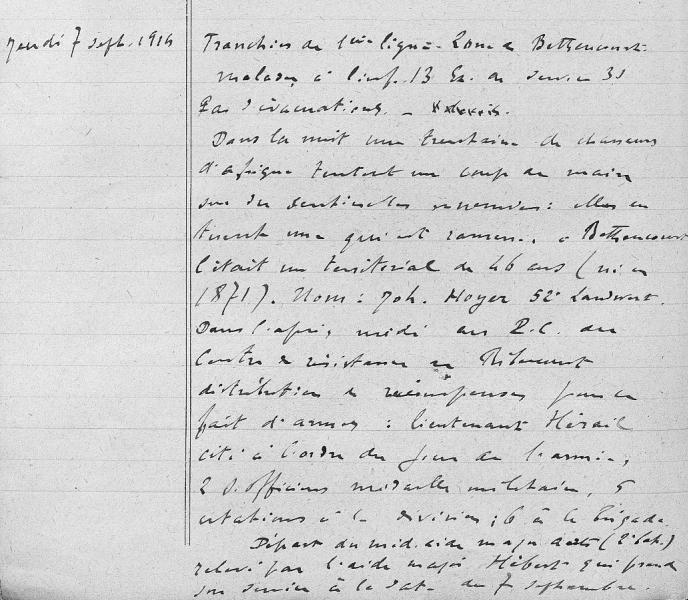 Jeudi 7 sept. 1916
Tranchées de 1ère ligne - Zone de Bethencourt
malades à l'inf. 13 Ex. de service 31
Pas d'évacuations. -
Dans la nuit une trentaine de chasseurs
d'afrique tentent un coup de main
sur des sentinelles ennemies : elles en
tuent une qui est ramenée à Bethencourt
C'était un territorial de 46 ans (né en
1871). Nom : Joh. Hoyer 52e Landwehr.
Dans l'après midi au P.C. du
Centre de résistance de Ribécourt
distribution de récompenses pour
fait d'armes : lieutenant Hérail
cité à l'ordre du jour de l'armée,
2 s. officiers médaille militaire, 5
citations à la division ; 6 à la brigade.
Départ du méd. aide major (2e bat.)
relevé par l'aide major Hébert qui prend
son service à la date du 7 septembre.